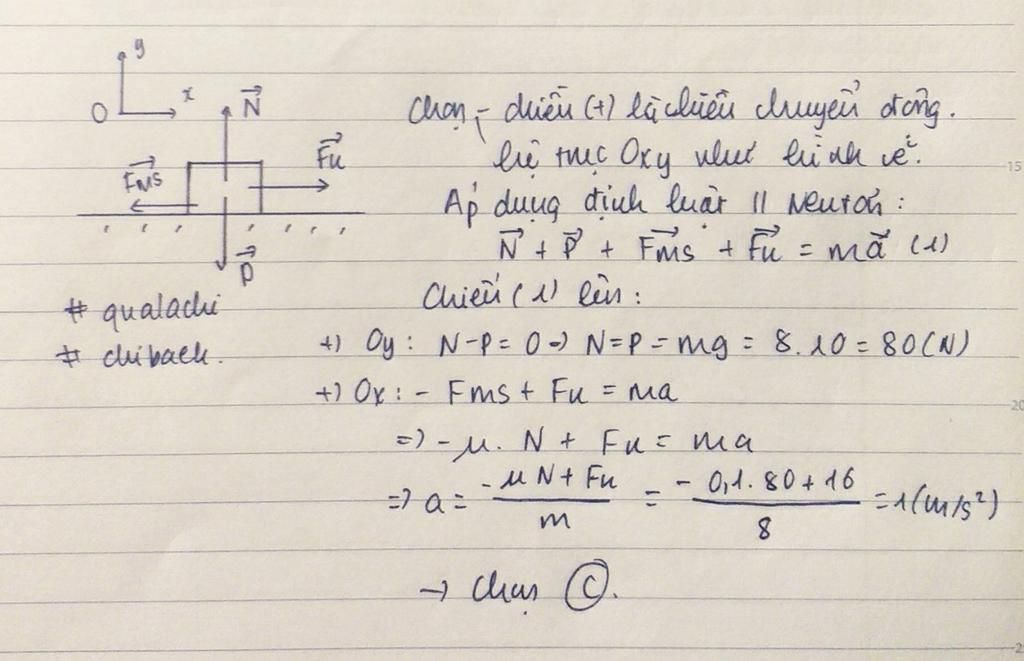 y
O
x
N⃗
Fms⃗
Fk⃗
P⃗
# qualachi
# chibach.
Chọn - chiều (+) là chiều chuyển động.
hệ trục Oxy như hình vẽ.
Áp dụng định luật II Neuton:
N⃗ + P⃗ + Fms⃗ + Fk⃗ = ma⃗ (1)
Chiếu (1) lên:
+) Oy: N-P = 0 => N=P = mg = 8.10 = 80(N)
+) Ox: - Fms + Fk = ma
=> - μ. N + Fk = ma
=> a = (-μN + Fk)/m = (-0,1.80+16)/8 = 1(m/s²)
→ Chọn Ⓒ.
15
20
2